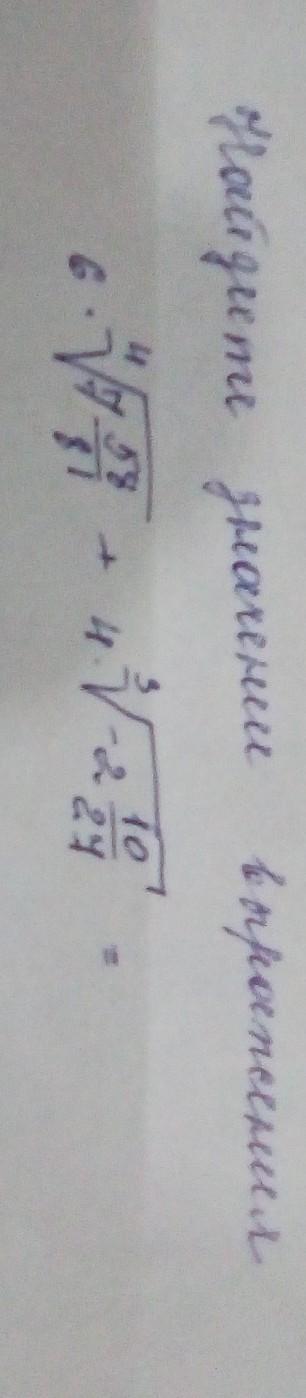 Найдите значении выражения
6 · ⁴√(7 58/81) + 4 · ³√(-2 10/27) =